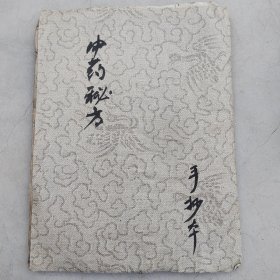 中药秘方
手抄本